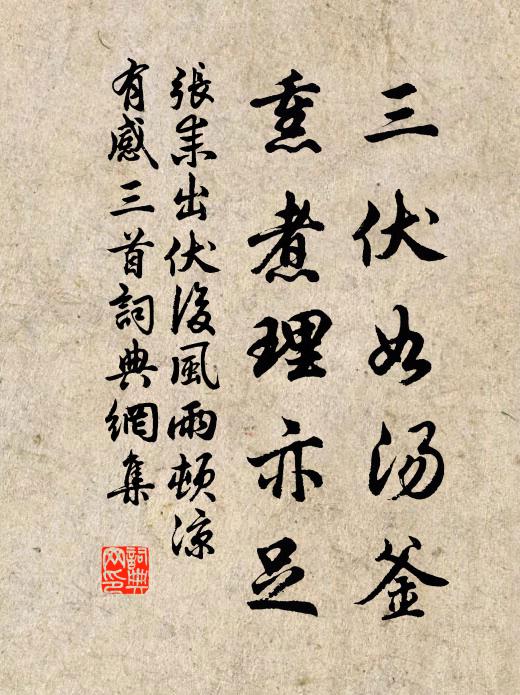 三伏如湯釜
熏煮理亦足
張耒出伏後風雨頓涼
有感三首詞典網集
詞典
網印